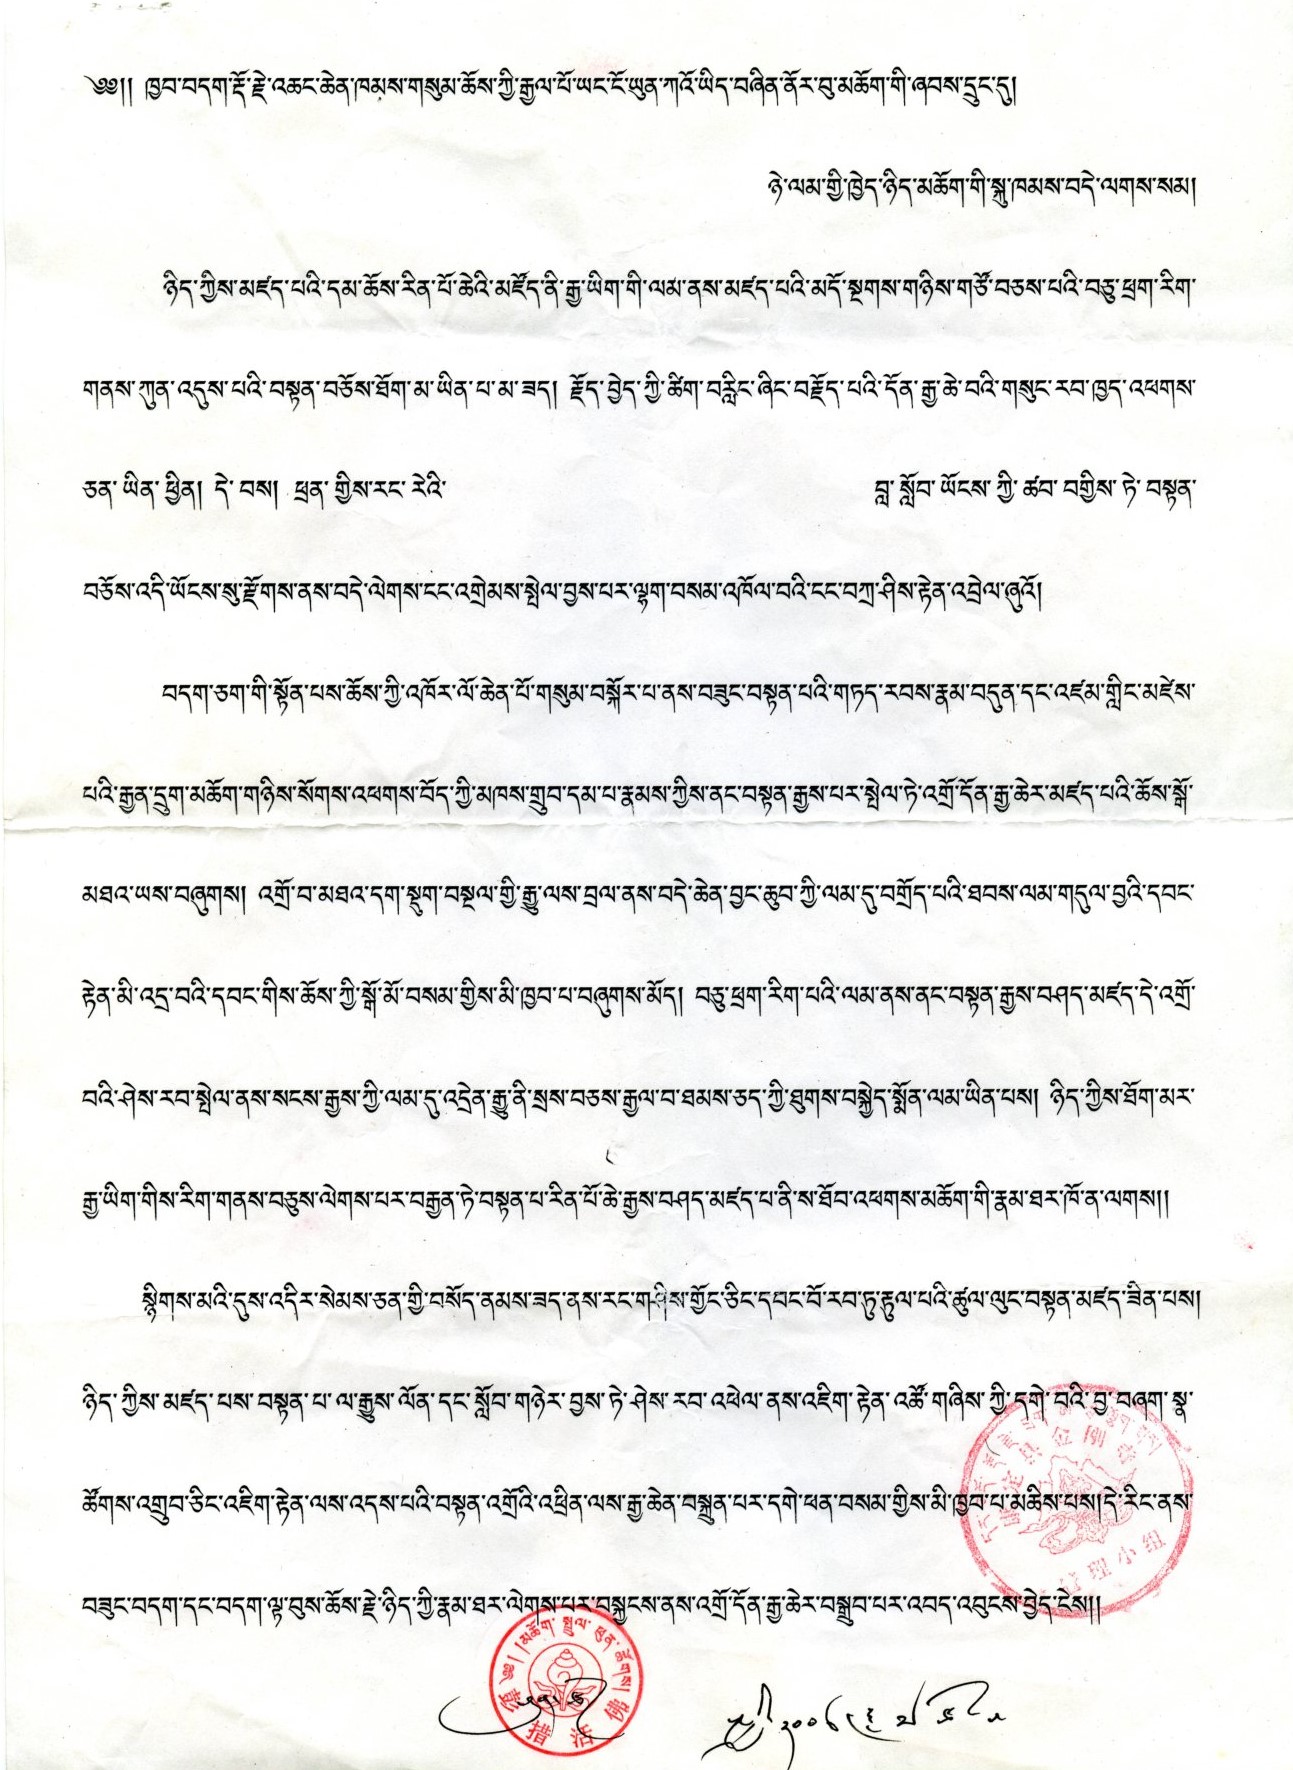 ༄༅།། ཁྱབ་བདག་རྡོ་རྗེ་འཆང་ཆེན་ཁམས་གསུམ་ཆོས་ཀྱི་རྒྱལ་པོ་ཡང་ངོ་ཡུན་ཀའོ་ཡིད་བཞིན་ནོར་བུ་མཆོག་གི་ཞབས་དྲུང་དུ།
ཉེ་ལམ་གྱི་ཁྱེད་ཉིད་མཆོག་གི་སྐུ་ཁམས་བདེ་ལགས་སམ།
ཉིད་ཀྱིས་མཛད་པའི་དམ་ཆོས་རིན་པོ་ཆེའི་མཛོད་ནི་རྒྱ་ཡིག་གི་ལམ་ནས་མཛད་པའི་མདོ་སྔགས་གཉིས་གཙོ་བཅས་པའི་བཅུ་ཕྲག་རིག་
གནས་ཀུན་འདུས་པའི་བསྟན་བཅོས་ཐོག་མ་ཡིན་པ་མ་ཟད། རྗོད་བྱེད་ཀྱི་ཚིག་བརླིང་ཞིང་བརྗོད་པའི་དོན་རྒྱ་ཆེ་བའི་གསུང་རབ་ཁྱད་འཕགས་
ཅན་ཡིན་ཕྱིན། དེ་བས། ཕྲན་གྱིས་རང་རེའི་ བླ་སློབ་ཡོངས་ཀྱི་ཚབ་བགྱིས་ཏེ་བསྟན་
བཅོས་འདི་ཡོངས་སུ་རྫོགས་ནས་བདེ་ལེགས་ངང་འགྲེམས་སྤེལ་བྱས་པར་ལྷག་བསམ་འཁོལ་བའི་ངང་བཀྲ་ཤིས་རྟེན་འབྲེལ་ཞུའོ།
བདག་ཅག་གི་སྟོན་པས་ཆོས་ཀྱི་འཁོར་ལོ་ཆེན་པོ་གསུམ་བསྐོར་པ་ནས་བཟུང་བསྟན་པའི་གཏད་རབས་རྣམ་བདུན་དང་འཛམ་གླིང་མཛེས་
པའི་རྒྱན་དྲུག་མཆོག་གཉིས་སོགས་འཕགས་བོད་ཀྱི་མཁས་གྲུབ་དམ་པ་རྣམས་ཀྱིས་ནང་བསྟན་རྒྱས་པར་སྤེལ་ཏེ་འགྲོ་དོན་རྒྱ་ཆེར་མཛད་པའི་ཆོས་སྒོ་
མཐའ་ཡས་བཞུགས། འགྲོ་བ་མཐའ་དག་སྡུག་བསྔལ་གྱི་རྒྱུ་ལས་བྲལ་ནས་བདེ་ཆེན་བྱང་ཆུབ་ཀྱི་ལམ་དུ་བགྲོད་པའི་ཐབས་ལམ་གདུལ་བྱའི་དབང་
རྟེན་མི་འདྲ་བའི་དབང་གིས་ཆོས་ཀྱི་སྒོ་མོ་བསམ་གྱིས་མི་ཁྱབ་པ་བཞུགས་མོད། བཅུ་ཕྲག་རིག་པའི་ལམ་ནས་ནང་བསྟན་རྒྱས་བཤད་མཛད་དེ་འགྲོ་
བའི་ཤེས་རབ་སྤེལ་ནས་སངས་རྒྱས་ཀྱི་ལམ་དུ་འདྲེན་རྒྱུ་ནི་སྲས་བཅས་རྒྱལ་བ་ཐམས་ཅད་ཀྱི་ཐུགས་བསྐྱེད་སྨོན་ལམ་ཡིན་པས། ཉིད་ཀྱིས་ཐོག་མར་
རྒྱ་ཡིག་གིས་རིག་གནས་བཅུས་ལེགས་པར་བརྒྱན་ཏེ་བསྟན་པ་རིན་པོ་ཆེ་རྒྱས་བཤད་མཛད་པ་ནི་ས་ཐོབ་འཕགས་མཆོག་གི་རྣམ་ཐར་ཁོ་ན་ལགས།།
སྙིགས་མའི་དུས་འདིར་སེམས་ཅན་གྱི་བསོད་ནམས་ཟད་ནས་རང་གཤིས་གྱོང་ཅིང་དབང་པོ་རབ་ཏུ་རྟུལ་པའི་ཚུལ་ལུང་བསྟན་མཛད་ཟིན་པས།
ཉིད་ཀྱིས་མཛད་པས་བསྟན་པ་ལ་རྒྱུས་ལོན་དང་སློབ་གཉེར་བྱས་ཏེ་ཤེས་རབ་འཕེལ་ནས་འཇིག་རྟེན་འཚོ་གཞིས་ཀྱི་དགེ་བའི་བྱ་བཞག་སྣ་
ཚོགས་འགྲུབ་ཅིང་འཇིག་རྟེན་ལས་འདས་པའི་བསྟན་འགྲོའི་འཕྲིན་ལས་རྒྱ་ཆེན་བསྐྲུན་པར་དགེ་ཕན་བསམ་གྱིས་མི་ཁྱབ་པ་མཆིས་པས། དེ་རིང་ནས་
བཟུང་བདག་དང་བདག་ལྟ་བུས་ཆོས་རྗེ་ཉིད་ཀྱི་རྣམ་ཐར་ལེགས་པར་བསྐྱངས་ནས་འགྲོ་དོན་རྒྱ་ཆེར་བསྒྲུབ་པར་འབད་འབུངས་བྱེད་ངེས།།
མཆོག་སྤྲུལ་ཕུན་ཚོགས།
措 活
管理小组